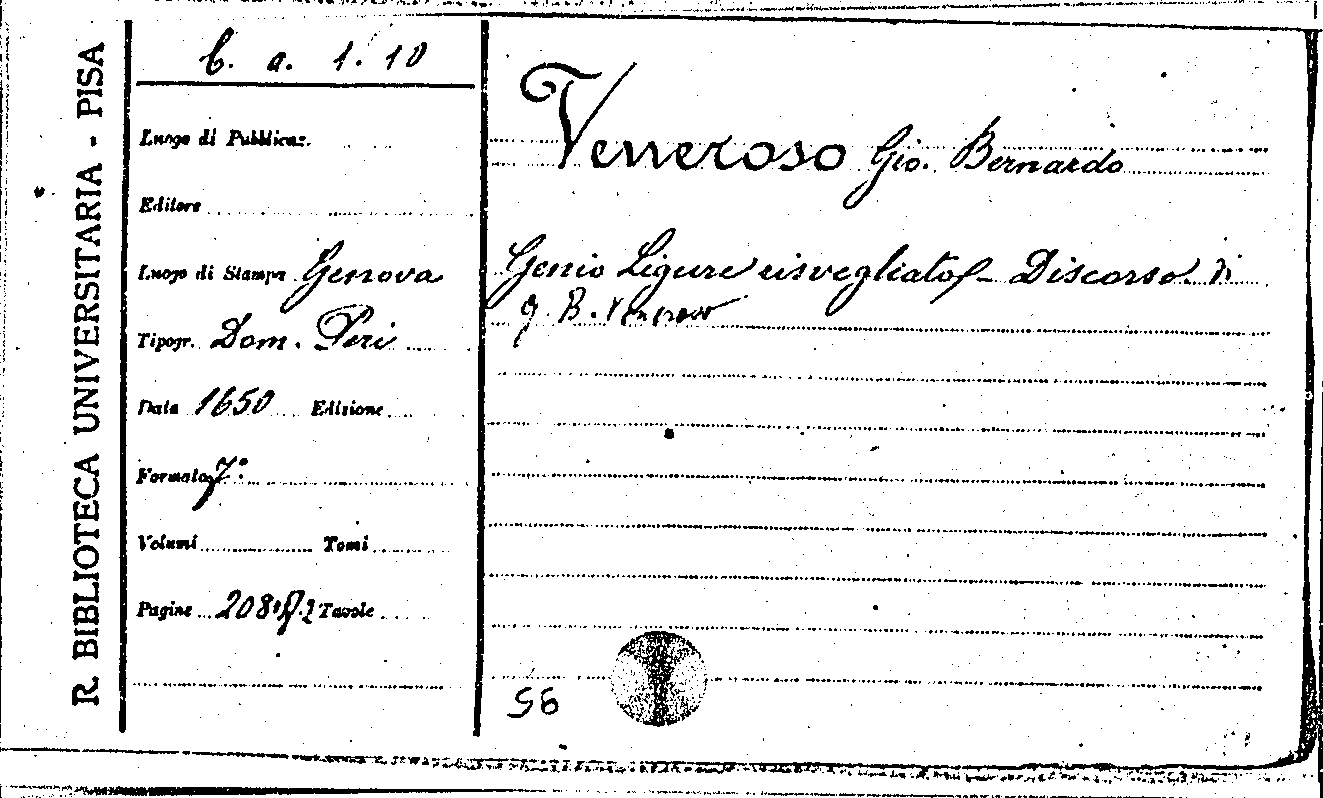 R. BIBLIOTECA UNIVERSITARIA - PISA
C. a. 1. 10
Luogo di Pubblicaz.
Editore
Luogo di Stampa Genova
Tipogr. Dom. Peri
Data 1650 Edizione
Formato 7°
Volumi Tomi
Pagine 208 Tavole
Veneroso Gio. Bernardo
Genio Ligure risvegliato - Discorso di
G. B. Veneroso
56